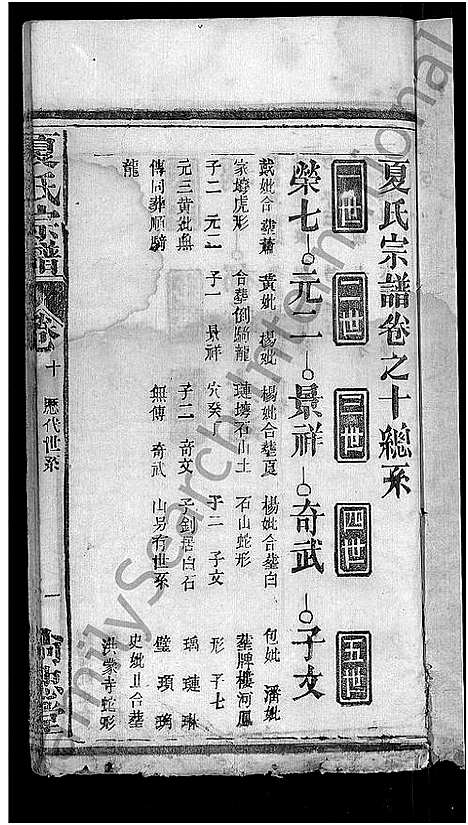 夏氏宗譜卷之十總系
一世 二世 三世 四世 五世
榮七 元二 景祥 奇武 子文
戴妣合葬蕭 黄妣 楊妣 楊妣合葬夏 楊妣合葬白 包妣 潘妣
家墳虎形 合葬倒騎龍 璉墳石山土 石山蛇形 葬牌樓河鳳
子二 元一 子一 景祥 穴癸 子二 子文 形 子七
元三黄妣無 子二 奇文 子釗居白石 瑀 璉 琳
傳同葬順騎 無傳 奇武 山易有世系 璧 瑣 璃
龍 史妣 合葬
洪家寺蛇形
夏氏宗譜
卷十 歷代世系 一
FamilySearch International